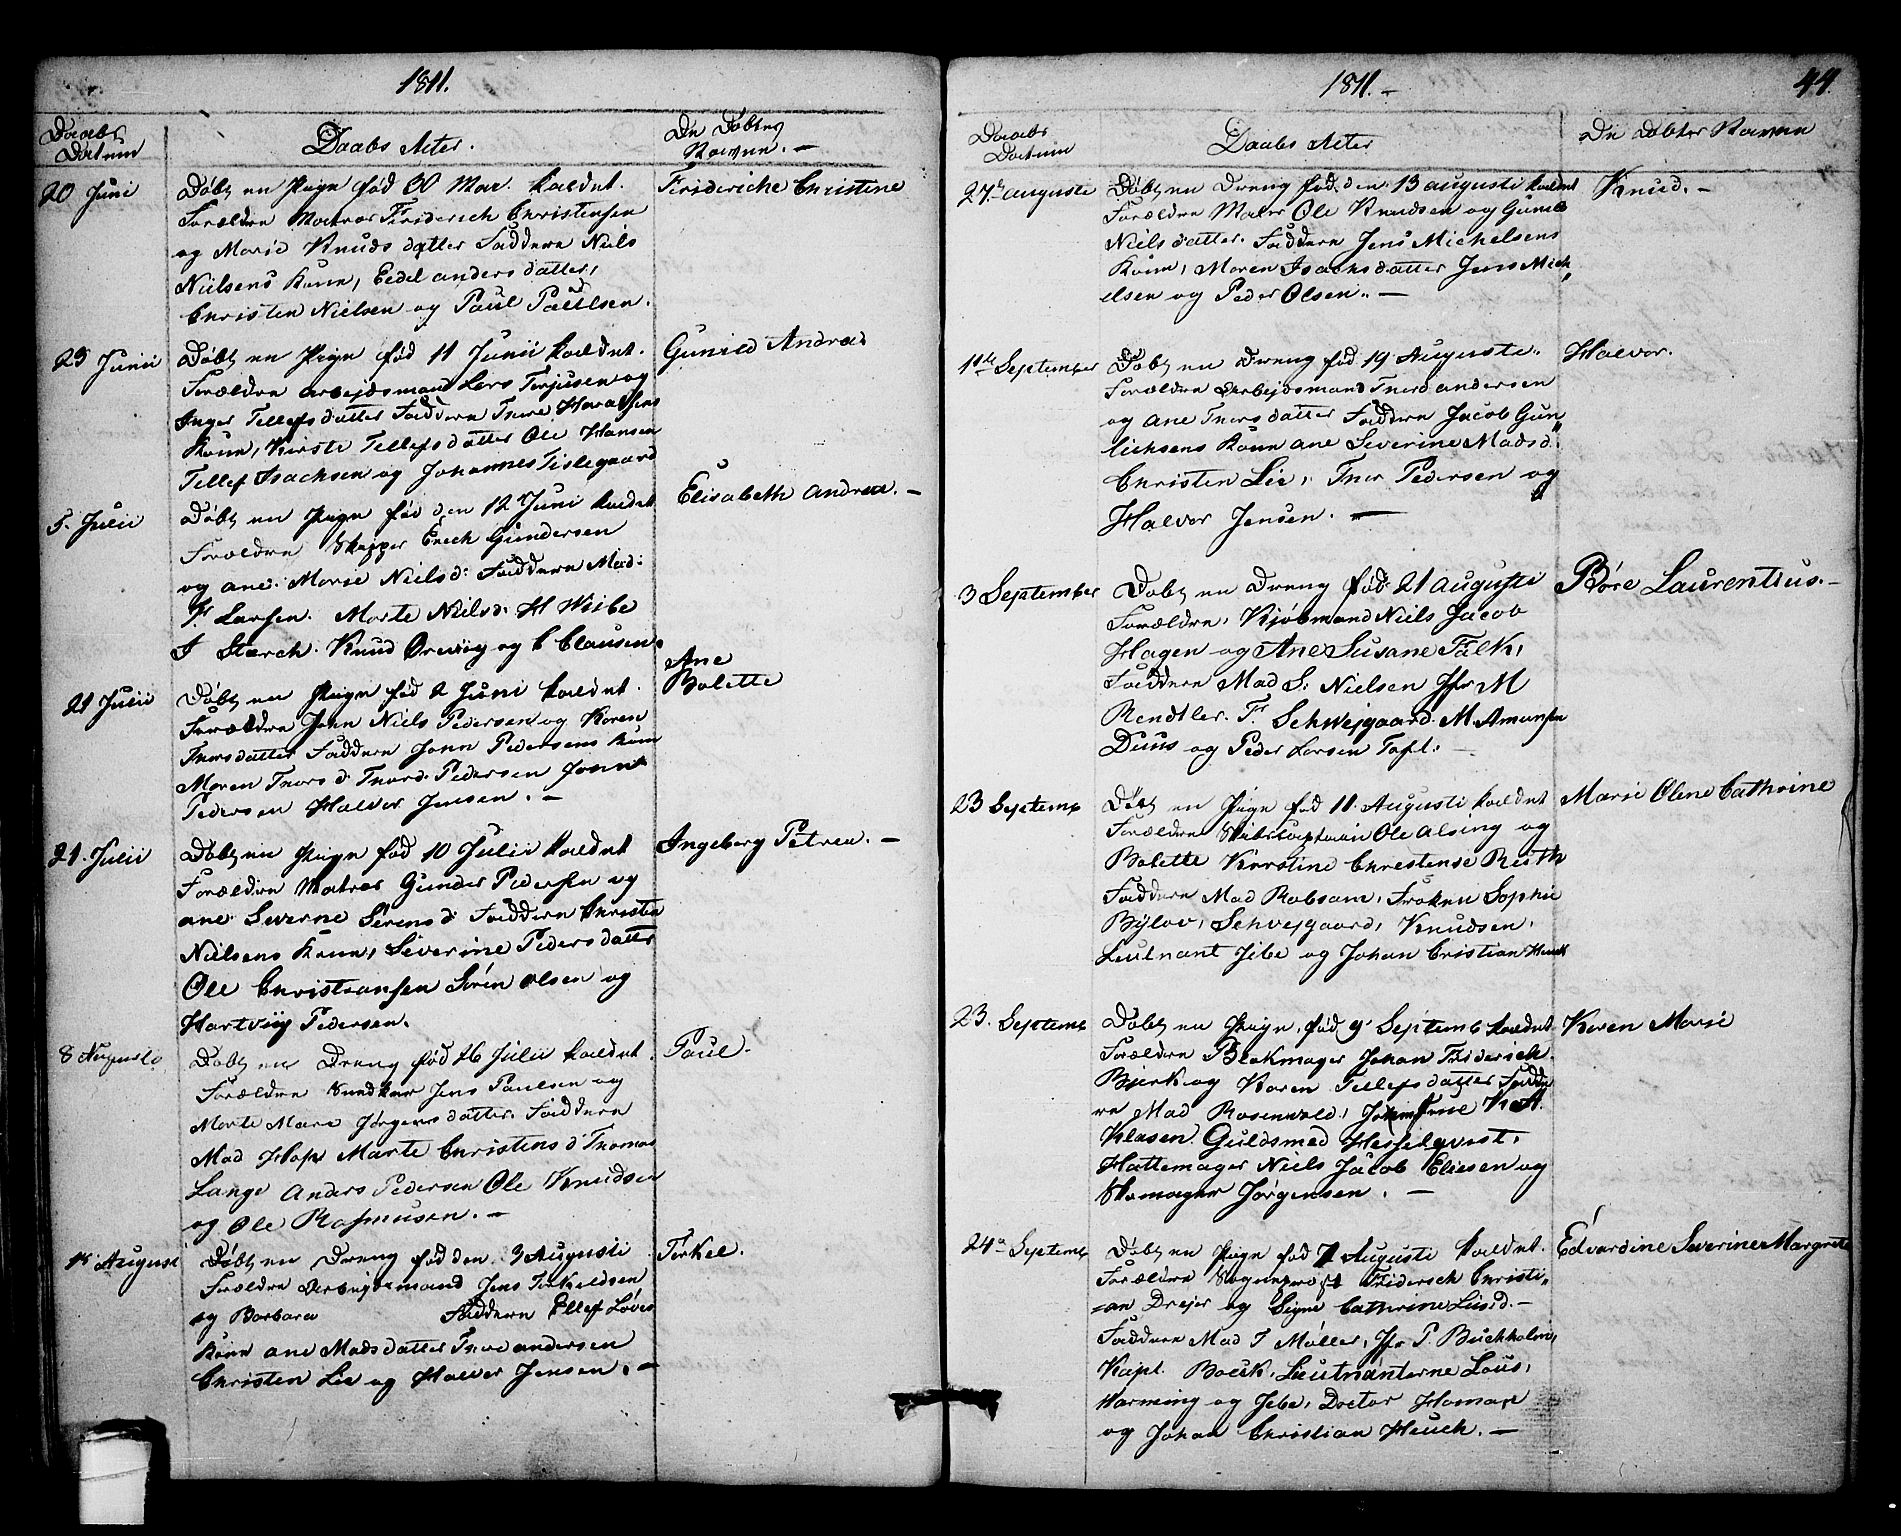 1811.
Daabs Datum
Daabs Acter.
De Døbtes Navne. —
20 Juni
Døbt en Pige fød 30 Mai. kaldet.
Frideriche Christine
Forældre Matros Friderich Christensen
og Marie Knuds datter Faddere Niels
Nielsens Kone, Eedel anders datter,
Christen Nielsen og Paul Paulsen.
23 Junii
Døbt en Pige fød 11 Junii kaldet.
Gunild Andrea
Forældre arbejdsmand Lars Terjusen og
Inger Tellefsdatter Faddere Thore Haraldsens
Kone, Kirsti Tellefsdatter Ole Hansen
Tellef Isachsen og Johannes Tislegaard
5. Julii
Døbt en Pige fød den 12 Juni kaldet
Elisabeth Andrea. —
Forældre Skipper Erich Gundersen
og ane Marie Nielsd: Faddere Mad:
F Larsen. Marte Nielsd: H Wibe
I Stærch. Knud Ørevig og C Clausen.
21 Julii
Døbt en Pige fød 2 Juni kaldet.
Ane
Bolette
Forældre John Niels Pedersen og Karen
Thorsdatter Faddere John Pedersens Kone
Maren Thors d. Thord Pedersen John
Pedersen Halvor Jensen. —
21. Julii
Døbt en Pige fød 10 Julii kaldet
Ingeborg Petrea. —
Forældre Matros Gunder Pedersen og
ane Severne Sørensd: Faddere Christen
Nielsens Kone, Severine Pedersdatter
Ole Christiansen Søren Olsen og
Hartvig Pedersen.
8 Augusti
Døbt en Dreng fød 26 Julii kaldet.
Paul.
Forældre Jens Paulsen og
Marte Marie Jørgensdatter. Faddere
Mad Hop Marte Christens d Thomas
Lange Anders Pedersen Ole Knudsen
og Ole Rasmusen. —
Augusti
Døbt en Dreng fød den 3 Augusti
Terkel.
Forældre Arbeydsmand Jens Terkeldsen
og Barbara Faddere Ellef Løves
Kone ane Madsdatter Thore andersen
Christen Lie og Halvor Jensen. —
1811. —
44
Daabs Datum
Daabs Acter
De Døbtes Navne
27de Augusti
Døbt en Dreng fød. den 13 augusti kaldet
Knud. —
Forældre Mater Ole Knudsen og Gunild
Niels datter. Faddere Jens Michelsens
Kone, Maren Isachsdatter Jens Mich„
elsen og Peder Olsen. —
1ste September
Døbt en Dreng fød 19 Augusti.
Halvor.
Forældre Arbejdsmand Thord andersen
og ane Thorsdatter Faddere Jacob Gun„
lichsens Kone ane Severine Madsd.
Christen Lie, Thor Pedersen og
Halvor Jensen. —
3 September
Døbt en Dreng fød 21 augusti
Børe Laurentius. —
Forældre, Kjøbmand Niels Jacob
Hagen og Ane Susane Falk,
Faddere Mad S: Nielsen Jfr M
Rendtler. F. Schweigaard. M. Amundsen
Duus og Peder Larsen Toft. —
23 Septemb
Døbt en Pige fød 11. Augusti kaldet
Marie Olene Cathrine
Forældre Skibscaptain Ole Alsing og
Bolette Kirstine Christense Reith
Faddere Mad Robsam, Frøken Sophie
Bylov, Schvejgaard, Knudsen,
Leutnant Jebe og Johan Cristian Heuch
23. Septemb
Døbt en Pige, fød 9 Septemb kaldet
Karen Marie
Forældre Blokmager Johan Friderich
Bjerk og Karen Tellefsdatter Fadde
re Mad Rosenvold, K A.
Klasen. Guldsmed Hesselqvist,
Hattemager Niels Jacob Eliesen og
Skomager Jørgensen. —
24de Septemb
Døbt en Pige fød 7 Augusti kaldet.
Edvardine Severine Margrete
Forældre Sogneprest Friderich Christi„
=an Drejer og Signe Cathrine Lund. —
Faddere Mad I Møller, Jfr P. Buckholm,
Kapt. Boeck, Lieutnanterne Lous,
Harming og Jebe, Doctor Homan
og Johan Christian Heuch. —